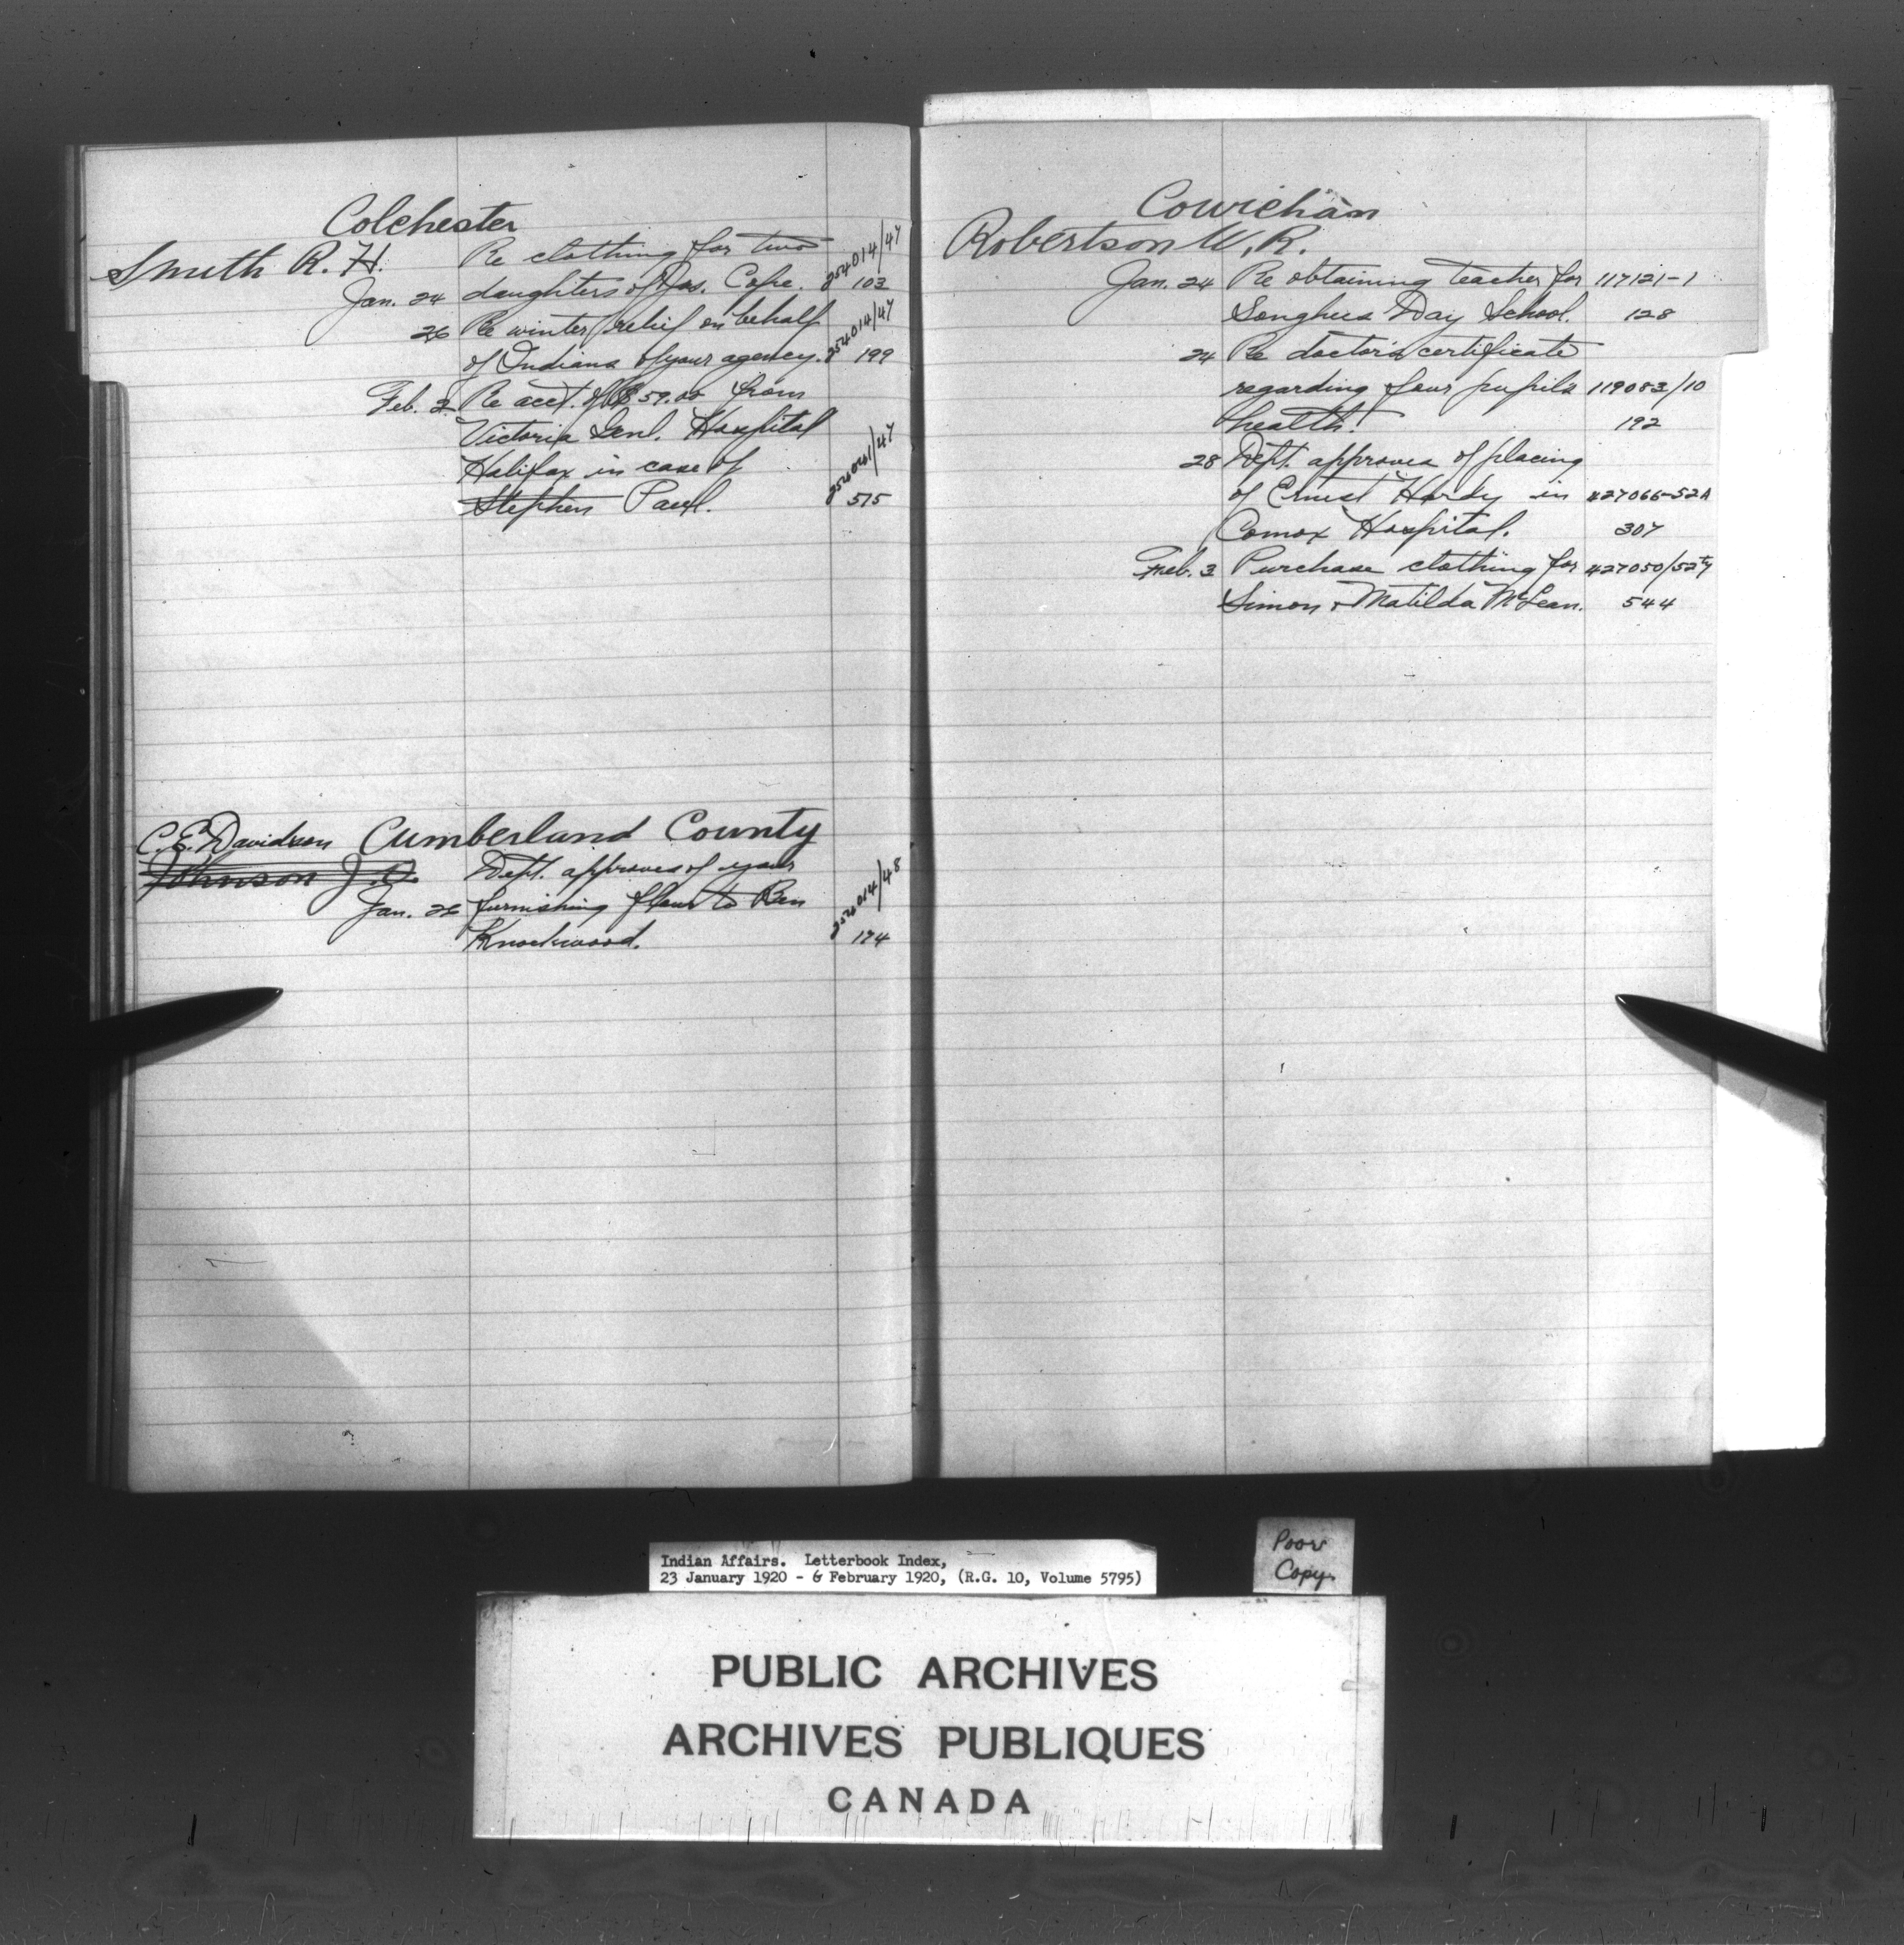 Colchester
Smith R. H.
Re clothing for two 254014/47
Jan. 24 daughters of Jas. Cope. 103
26 Re winter relief on behalf 254014/47
of Indians of your agency. 199
Feb. 2 Re acct. of $59.00 from
Victoria Genl. Hospital
Halifax in case of
Stephen Paul. 575
C. E. Davidson Cumberland County
Johnson J. A. Dept. approves of your
Jan. 26 furnishing flour to Ben
Knockwood. 174
Cowichan
Robertson W. R.
Jan. 24 Re obtaining teacher for 117121-1
Songhees Day School. 128
24 Re doctor's certificate
regarding four pupils 119083/10
health. 192
28 Dept. approves of placing
of Ernest Hardy in 427066-52A
Comox Hospital. 307
Feb. 3 Purchase clothing for 427050/52
Simon & Matilda McLean. 544
Indian Affairs. Letterbook Index,
23 January 1920 - 6 February 1920, (R.G. 10, Volume 5795)
Poor
Copy
PUBLIC ARCHIVES
ARCHIVES PUBLIQUES
CANADA